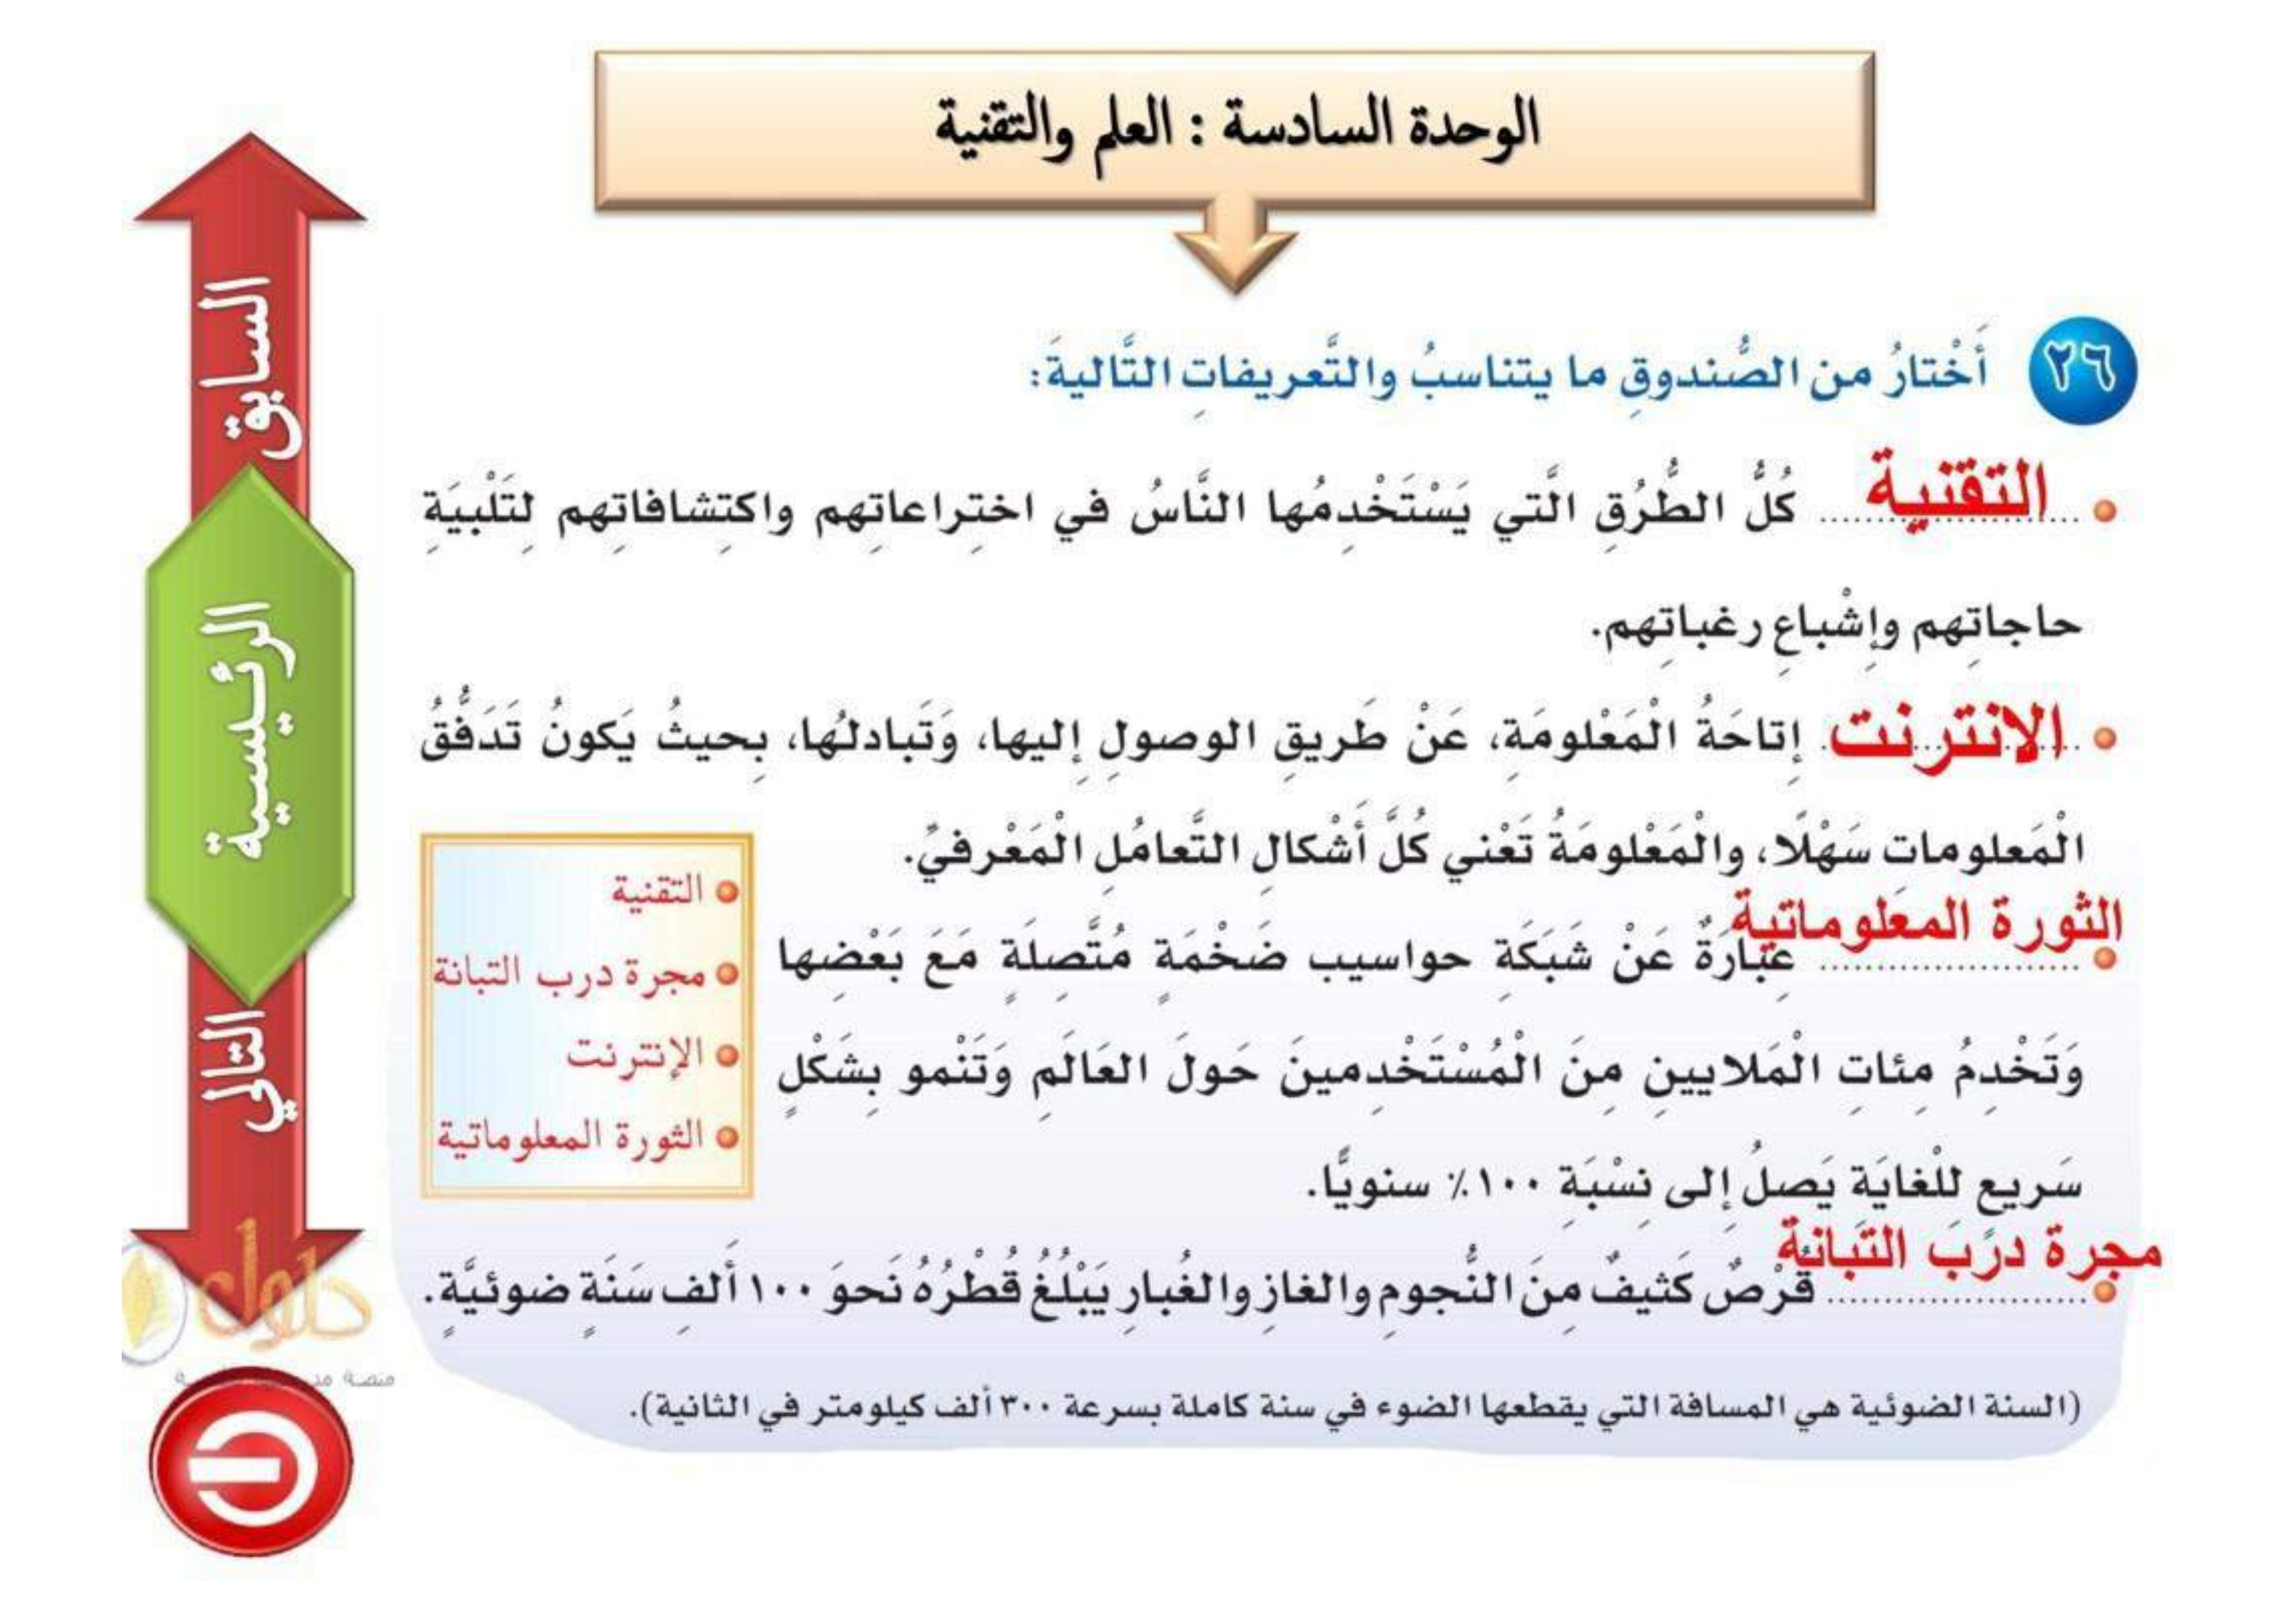 الوحدة السادسة : العلم والتقنية
٢٦ أَخْتارُ من الصُّندوقِ ما يتناسبُ والتَّعريفاتِ التَّاليةَ:
• التقنية كُلُّ الطُّرُقِ الَّتي يَسْتَخْدِمُها النَّاسُ في اختِراعاتِهم واكتِشافاتِهم لِتَلْبيَةِ
حاجاتِهم وإشْباعِ رغباتِهم.
• الانترنت إتاحَةُ الْمَعْلومَةِ، عَنْ طَريقِ الوصولِ إليها، وَتَبادلُها، بِحيثُ يَكونُ تَدَفُّقُ
الْمَعلومات سَهْلًا، والْمَعْلومَةُ تَعْني كُلَّ أَشْكالِ التَّعامُلِ الْمَعْرفيِّ.
• الثورة المعلوماتية عِبارَةٌ عَنْ شَبَكَةِ حواسيب ضَخْمَةٍ مُتَّصِلَةٍ مَعَ بَعْضِها
وَتَخْدِمُ مِئاتِ الْمَلايينِ مِنَ الْمُسْتَخْدِمينَ حَولَ العَالَمِ وَتَنْمو بِشَكْلٍ
سَريع للْغايَة يَصلُ إلى نِسْبَةِ ١٠٠٪ سنويًّا.
• مجرة درب التبانة قُرْصٌ كَثيفٌ مِنَ النُّجومِ والغازِ والغُبارِ يَبْلُغُ قُطْرُهُ نَحوَ ١٠٠ أَلفِ سَنَةٍ ضوئيَّةٍ.
(السنة الضوئية هي المسافة التي يقطعها الضوء في سنة كاملة بسرعة ٣٠٠ ألف كيلومتر في الثانية).
• التقنية
• مجرة درب التبانة
• الإنترنت
• الثورة المعلوماتية
السابق
الرئيسية
التالي
حلول